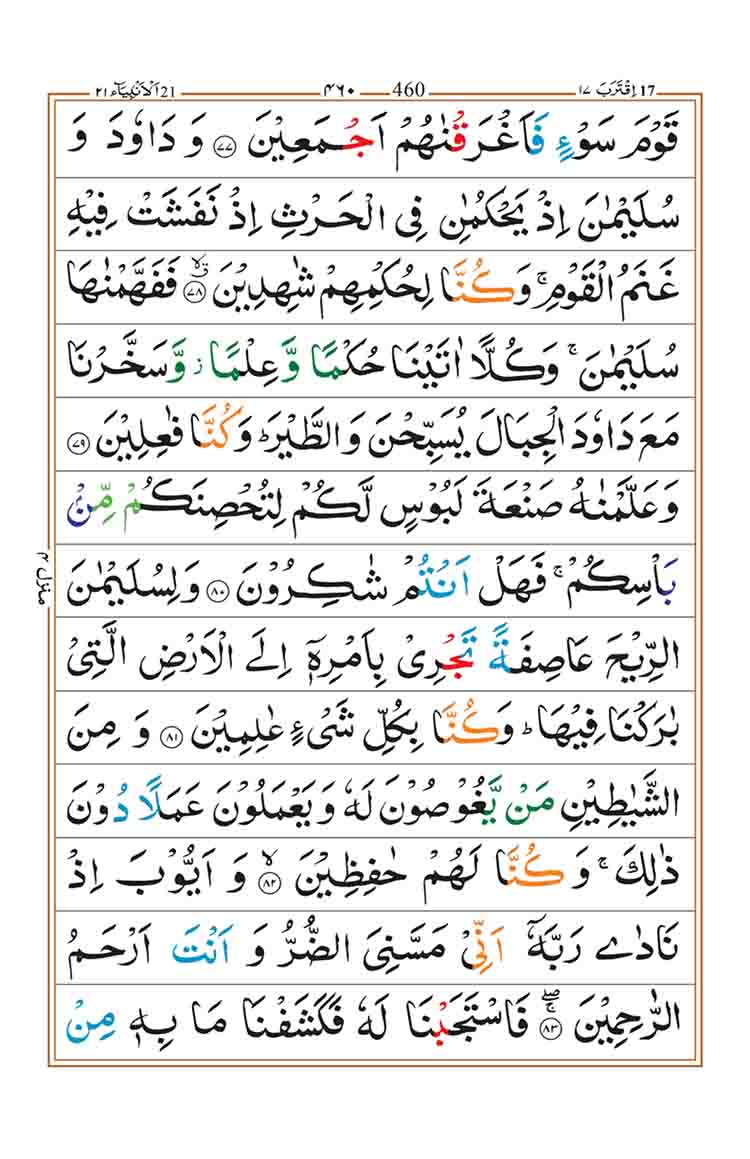 اِقْتَرَبَ ١٧ 17 460 ۴۶۰ 21 اَلْاَنْبِيَآء ٢١
قَوْمَ سَوْءٍ فَاَغْرَقْنٰهُمْ اَجْمَعِيْنَ ۝٧٧ وَ دَاوٗدَ وَ
سُلَيْمٰنَ اِذْ يَحْكُمٰنِ فِى الْحَرْثِ اِذْ نَفَشَتْ فِيْهِ
غَنَمُ الْقَوْمِ ۚ وَكُنَّا لِحُكْمِهِمْ شٰهِدِيْنَ ۝٧٨ۙ فَفَهَّمْنٰهَا
سُلَيْمٰنَ ۚ وَكُلًّا اٰتَيْنَا حُكْمًا وَّعِلْمًا ؗ وَّسَخَّرْنَا
مَعَ دَاوٗدَ الْجِبَالَ يُسَبِّحْنَ وَالطَّيْرَ ؕ وَكُنَّا فٰعِلِيْنَ ۝٧٩
وَعَلَّمْنٰهُ صَنْعَةَ لَبُوْسٍ لَّكُمْ لِتُحْصِنَكُمْ مِّنْۢ
بَاْسِكُمْ ۚ فَهَلْ اَنْتُمْ شٰكِرُوْنَ ۝٨٠ وَلِسُلَيْمٰنَ
الرِّيْحَ عَاصِفَةً تَجْرِىْ بِاَمْرِهٖۤ اِلَى الْاَرْضِ الَّتِىْ
بٰرَكْنَا فِيْهَا ؕ وَكُنَّا بِكُلِّ شَىْءٍ عٰلِمِيْنَ ۝٨١ وَ مِنَ
الشَّيٰطِيْنِ مَنْ يَّغُوْصُوْنَ لَهٗ وَيَعْمَلُوْنَ عَمَلًا دُوْنَ
ذٰلِكَ ۚ وَكُنَّا لَهُمْ حٰفِظِيْنَ ۝٨٢ۙ وَ اَيُّوْبَ اِذْ
نَادٰى رَبَّهٗۤ اَنِّىْ مَسَّنِىَ الضُّرُّ وَ اَنْتَ اَرْحَمُ
الرّٰحِمِيْنَ ۝٨٣ۖۚ فَاسْتَجَبْنَا لَهٗ فَكَشَفْنَا مَا بِهٖ مِنْ
منزل ۴